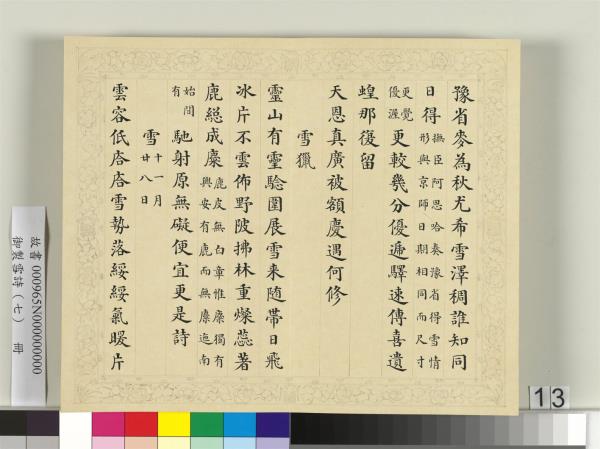 豫省麥為秋尤希雪澤稠誰知同
日得撫臣阿思哈奏豫省得雪情
形與京師日期相同而尺寸
更覺
優渥更較幾分優逓驛速傳喜遺
蝗那復留
天恩真廣被額慶遇何修
雪獵
靈山有靈騐圍展雪来随帶日飛
冰片不雲佈野陂拂林重燦蕊著
鹿総成麋鹿皮無白章惟麋獨有
興安有鹿而無麋迤南
始間
有馳射原無礙便宜更是詩
雪十一月
廿八日
雲容低雪勢落綏綏氣暖片
故書000965N000000000
御製雪詩（七） 冊
13